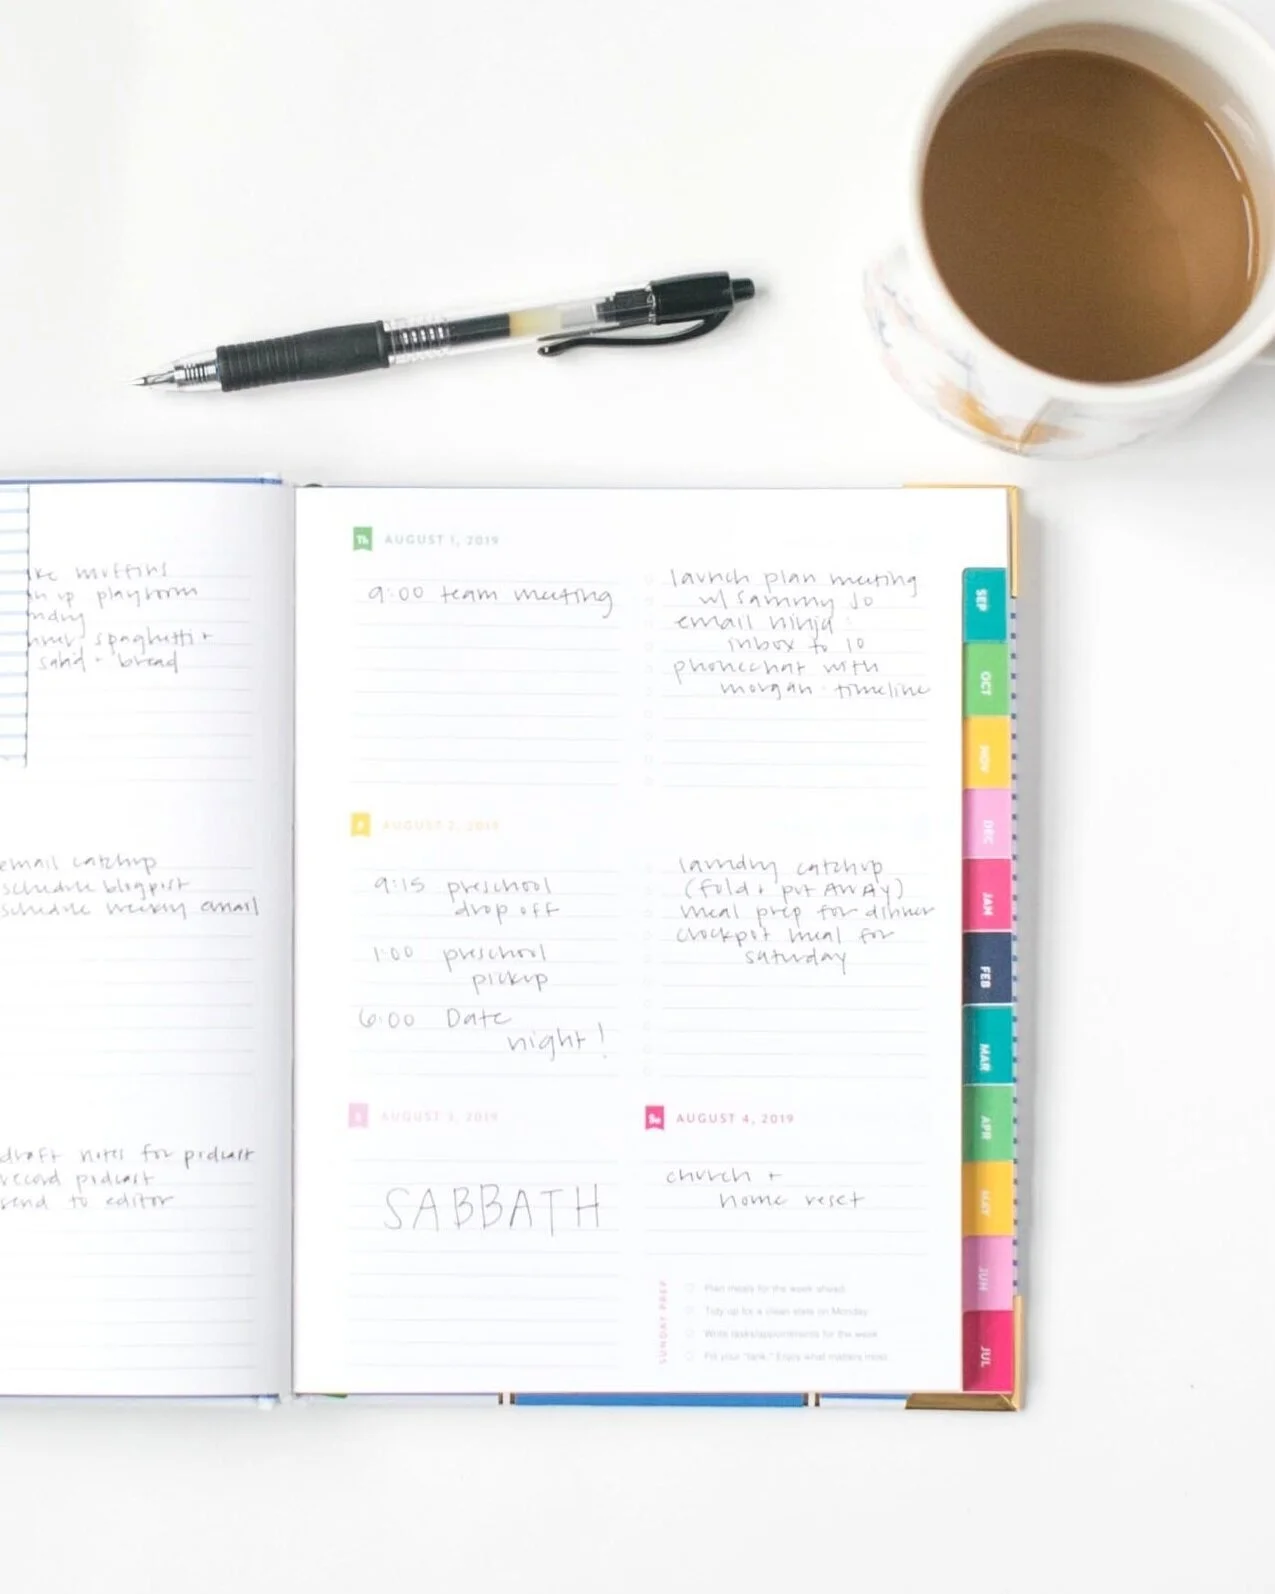 muffins
up playroom
spaghetti +
bread
email catchup
schedule blogpost
schedule weekly email
draft notes for podcast
record podcast
send to editor
Th AUGUST 1, 2019
9:00 team meeting
launch plan meeting
w/ Sammy Jo
email ninja:
inbox to 10
phonechat with
morgan - timeline
F AUGUST 2, 2019
9:15 preschool
drop off
1:00 preschool
pickup
6:00 Date
night!
laundry catchup
(fold + put AWAY)
meal prep for dinner
crockpot meal for
saturday
S AUGUST 3, 2019
SABBATH
Su AUGUST 4, 2019
church +
home reset
SUNDAY PREP
Plan meals for the week ahead
Tidy up for a clean slate on Monday
Write tasks/appointments for the week
Fill your "tank." Enjoy what matters most.
SEP
OCT
NOV
DEC
JAN
FEB
MAR
APR
MAY
JUN
JUL